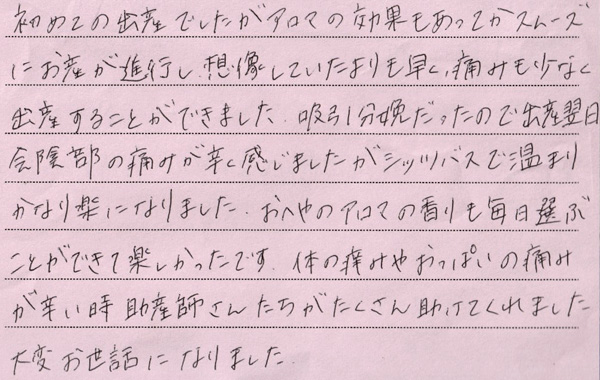 初めての出産でしたがアロマの効果もあってかスムーズ
にお産が進行し、想像していたよりも早く、痛みも少なく
出産することができました。吸引分娩だったので出産翌日
会陰部の痛みが辛く感じましたがシッツバスで温まり
かなり楽になりました。おへやのアロマの香りも毎日選ぶ
ことができて楽しかったです。体の痛みやおっぱいの痛み
が辛い時助産師さんたちがたくさん助けてくれました
大変お世話になりました。